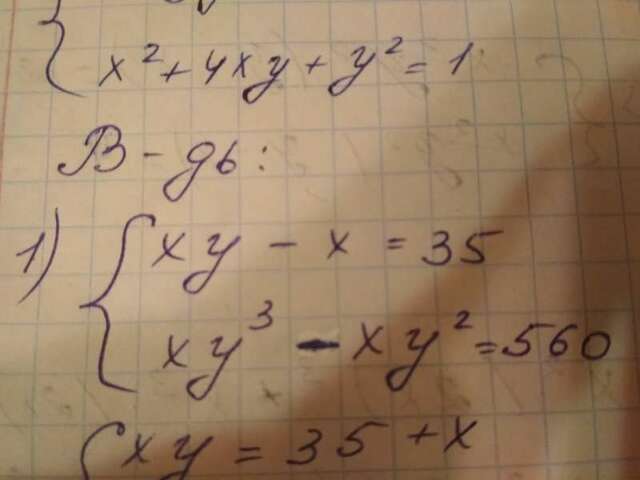 x² + 4xy + y² = 1
В-дь:
1) { xy - x = 35
xy³ - xy² = 560
{ xy = 35 + x